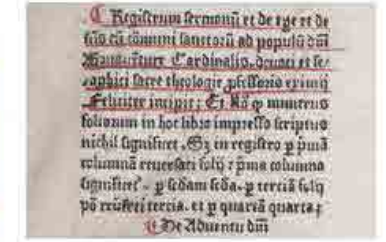 Registrum sermonū et de tꝑe et de
scīs cū cōmuni sanctorū ad populū dñi
Cardinalis, deuoti et se/
raphici sacre theologie ꝓfessoris eximij
Feliciter incipit; Et Nā ꝙ numerus
foliorum in hoc libro impresso scriptus
nichil significet, Sz in registro ꝑ pͥmā
columnā reuersati folij ; pͥma columna
significet ꝑ scdam scda, ꝑ terciā folij
tercia. et ꝑ quartā quarta ;
De Aduentu dñi